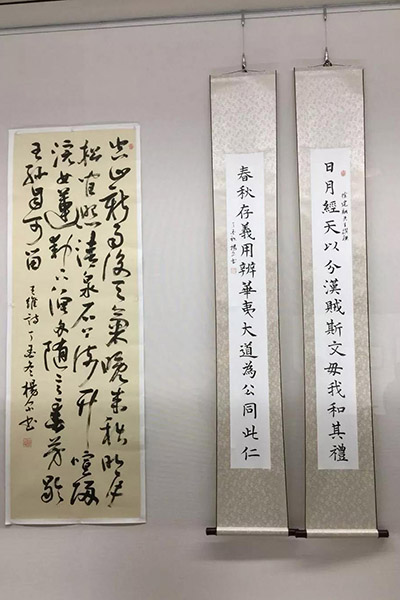 日月經天以分漢賊斯文毋我和其禮
徐建融先生撰聯
春秋存義用辨華夷大道為公同此仁
空山新雨後天氣晚來秋明月
松間照清泉石上流竹喧歸
浣女蓮動下漁舟隨意春芳歇
王孫自可留 王維詩丁酉冬楊書